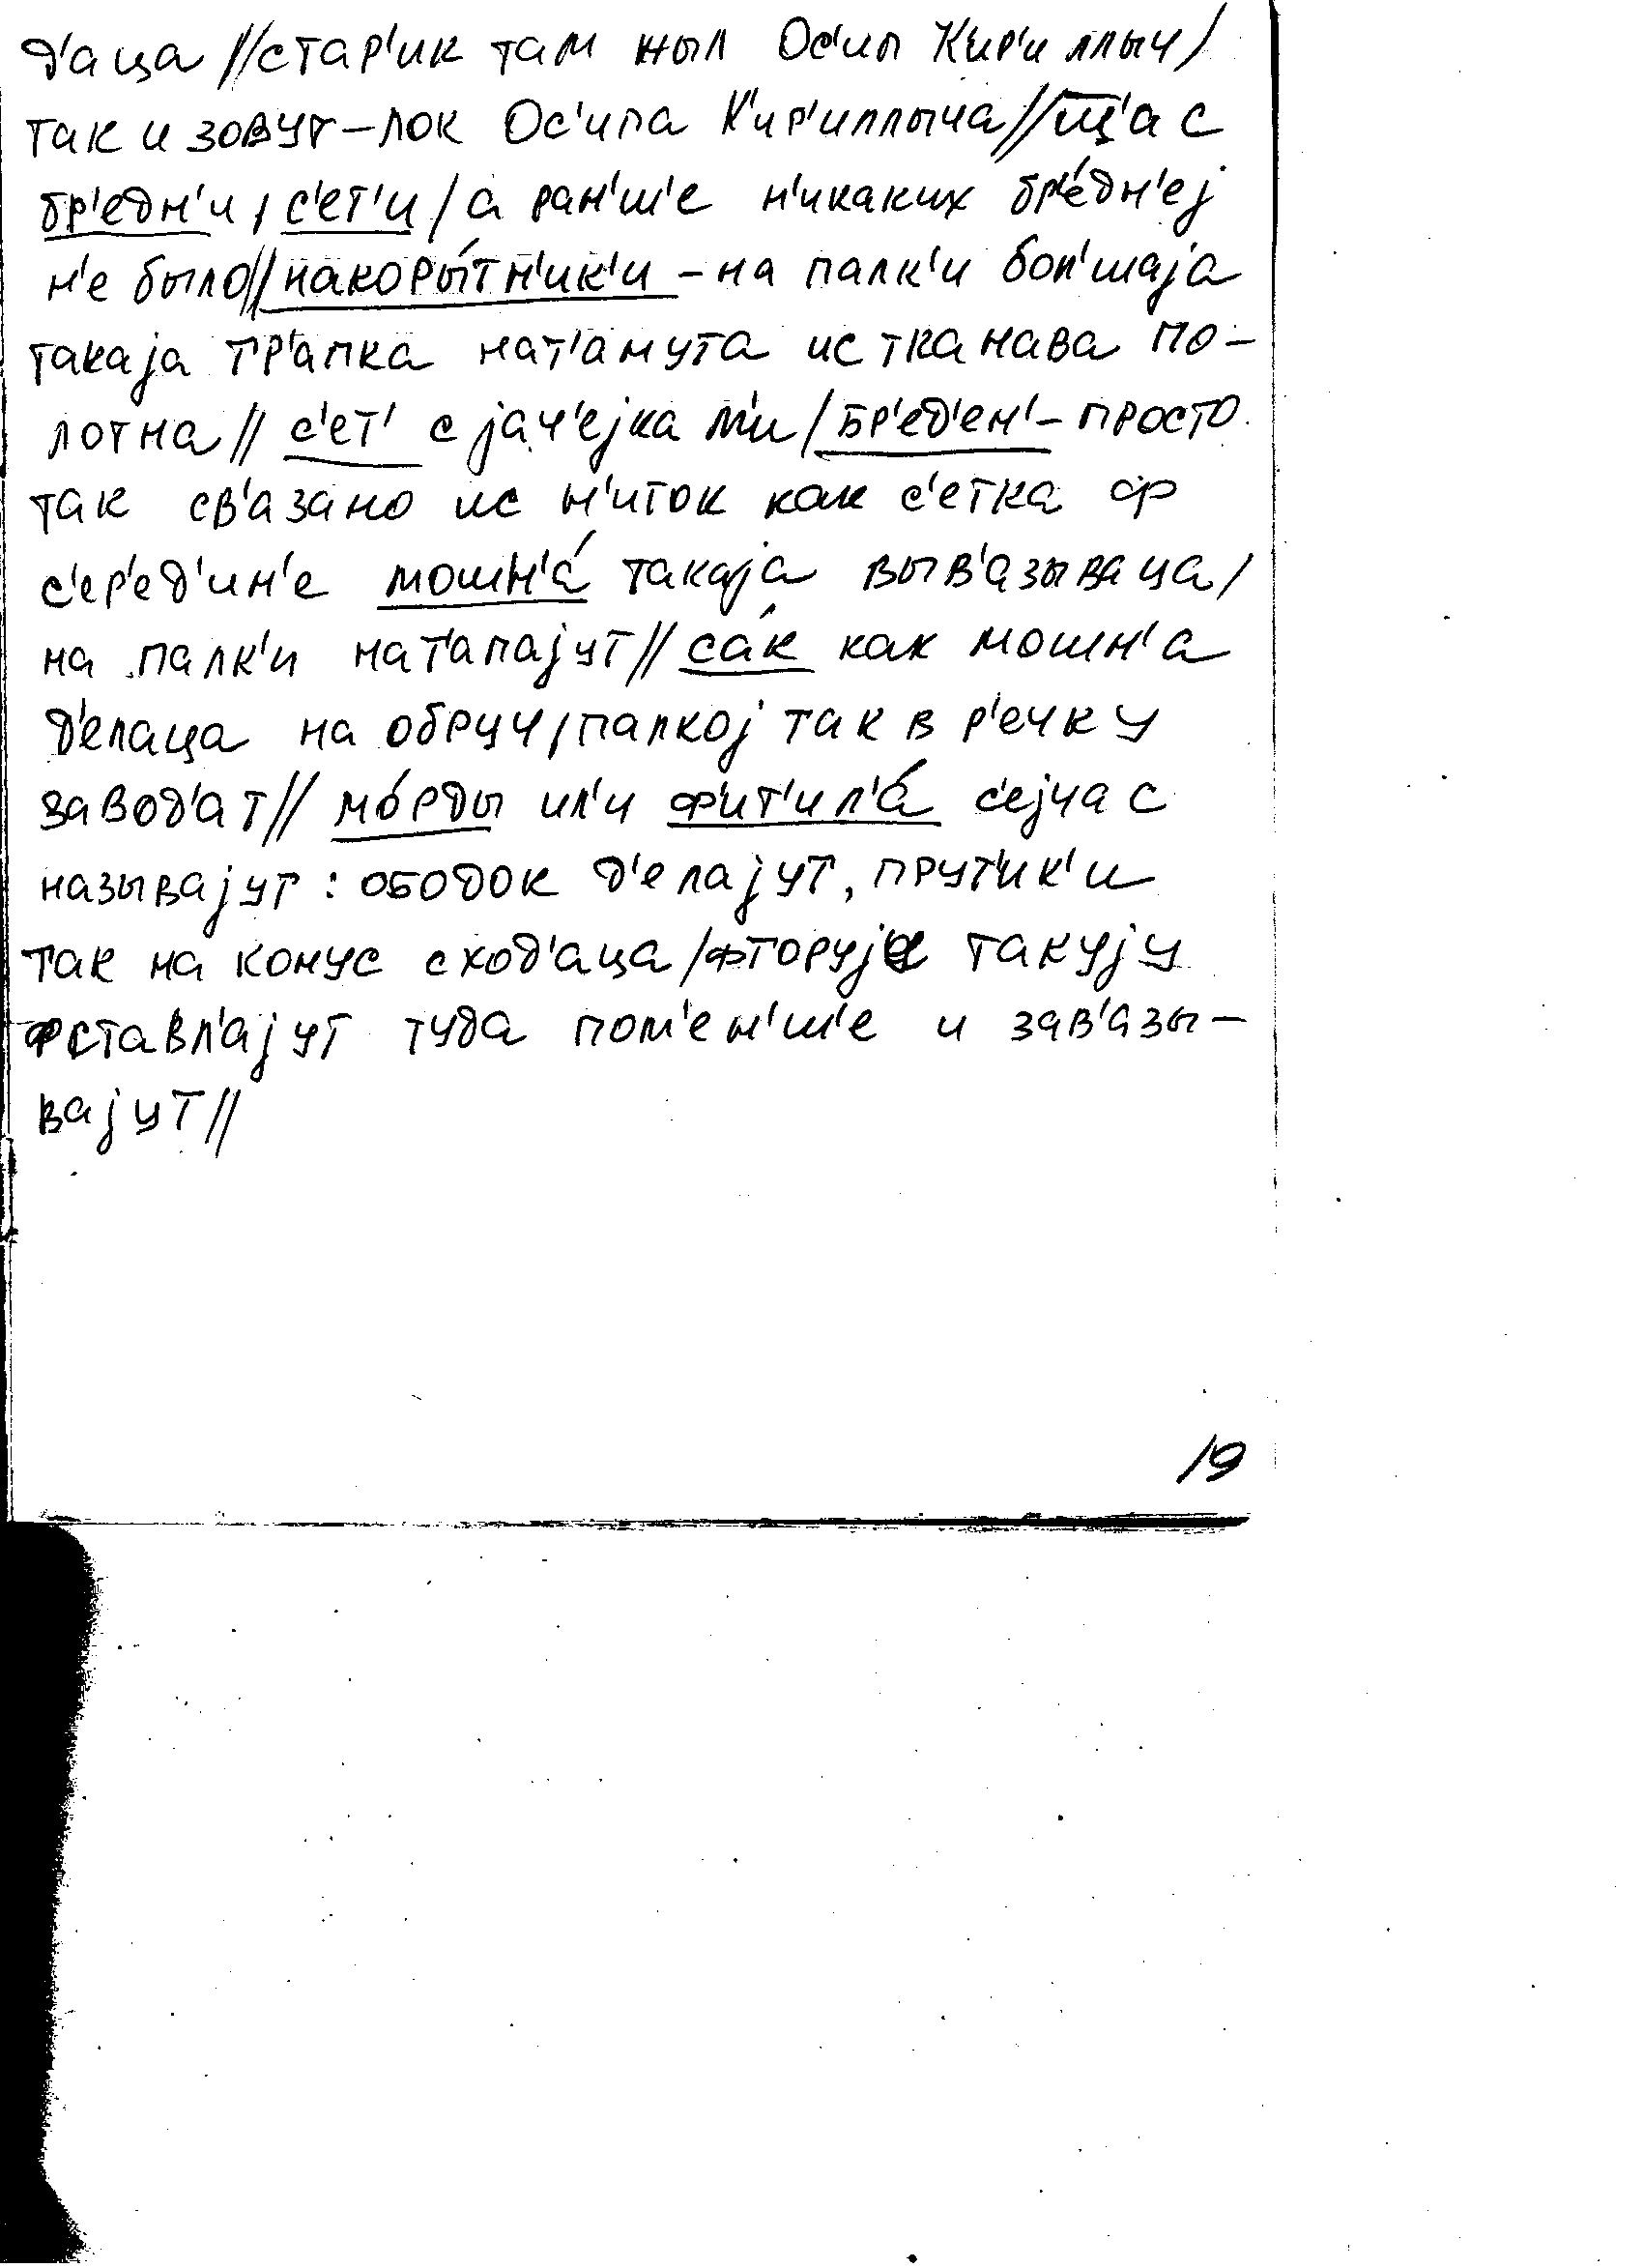 д'аца // стар'ик там жыл Ос'ип К'ир'иллыч /
так и зовут – лок Ос'ипа К'ир'иллыча // щ'ас
бр'едн'и, с'ет'и / а ран'ш'е н'икаких бр'е́дн'еј
н'е было // накоры́тн'ик'и – на палк'и бол'шаја
такаја тр'апка нат'анута ис тканава по-
лотна // с'ет' с јач'ејкам'и / бр'ед'ен' – просто
так св'азано ис н'иток как с'етка ф
с'ер'ед'ин'е мошн'а́ такаја выв'азываца /
на палк'и нат'апајут // са́к как мошн'а
д'елаца на обруч, палкој так в р'ечку
завод'ат // мо́рды ил'и ф'ит'ил'а́ с'ејчас
называјут : ободок д'елајут, прут'ик'и
так на конус сход'аца / фторују такују
фставл'ајут туда пом'ен'ш'е и зав'азы-
вајут //
19